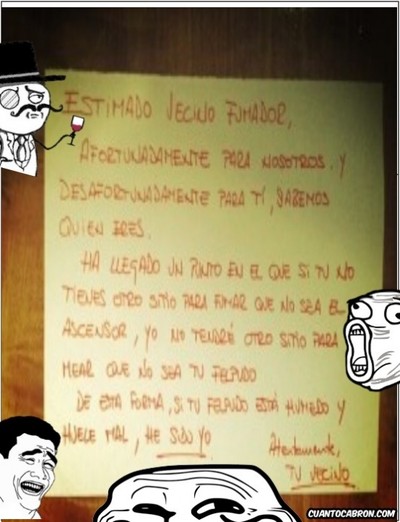 ESTIMADO VECINO FUMADOR,
AFORTUNADAMENTE PARA NOSOTROS, Y
DESAFORTUNADAMENTE PARA TÍ, SABEMOS
QUIEN ERES.
HA LLEGADO UN PUNTO EN EL QUE SI TU NO
TIENES OTRO SITIO PARA FUMAR QUE NO SEA EL
ASCENSOR, YO NO TENDRÉ OTRO SITIO PARA
MEAR QUE NO SEA TU FELPUDO
DE ESTA FORMA, SI TU FELPUDO ESTÁ HUMEDO Y
HUELE MAL, HE SIDO YO
Atentamente,
TU VECINO
CUANTOCABRON.COM